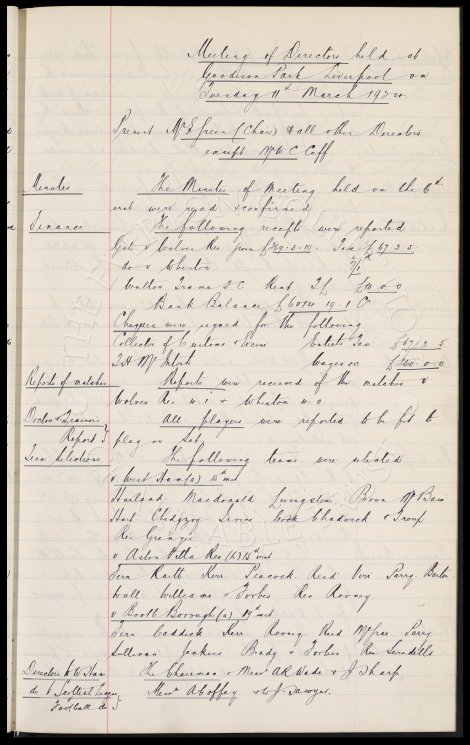 Meeting of Directors held at
Goodison Park Liverpool on
Tuesday 11th March 1924.
Present Mr E Green (Chair) & all other Directors
except Mr W C Cuff
Minutes The Minutes of Meeting held on the 6th
inst were read & confirmed
Finance The following receipts were reported
Gate v Wolves Res Tax £67-2-5
do v Wheeton
Walton Trams S C Rent T.F. £10-0-0
Bank Balance £6084 19 1
Cheques were signed for the following
Collector of Customs & Excise Enterts Tax £67 2 5
T.H. McIntosh Wages &c £260-0-0
Reports of matches Reports were received of the matches v
Wolves Res & Wheeton
Doctor & Trainer's Report All players were reported to be fit to
play on Sat.
Team Selections The following teams were selected
v West Ham (a) 15th inst
Harland Macdonald Livingston Brown McBain
Hart Chedgzoy Irvine Chadwick & Troup
Res
v Aston Villa Res (h) 15th inst
Fern Raitt Kerr Peacock Reid Parry
Wall Williams & Forbes Res Rooney
v Bootle Borough (a) 19th inst
Fern Caddick Kerr Rooney Reid Parry
Sullivan Jenkins Brady & Forbes Res
Directors to W Ham The Chairman & Messrs A R Wade & J Sharp
do to Football do Messrs A Coffey & W J Sawyer.